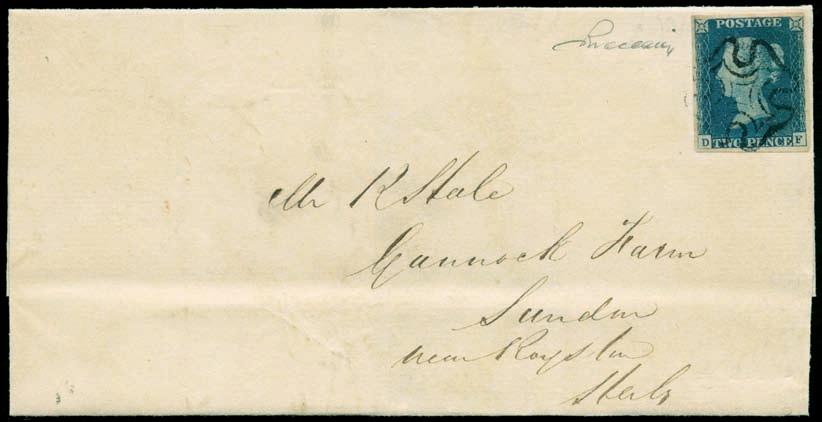 POSTAGE
D TWO PENCE F
Mr R Stale
Gannock Farm
Sundon
near Royston
Herts